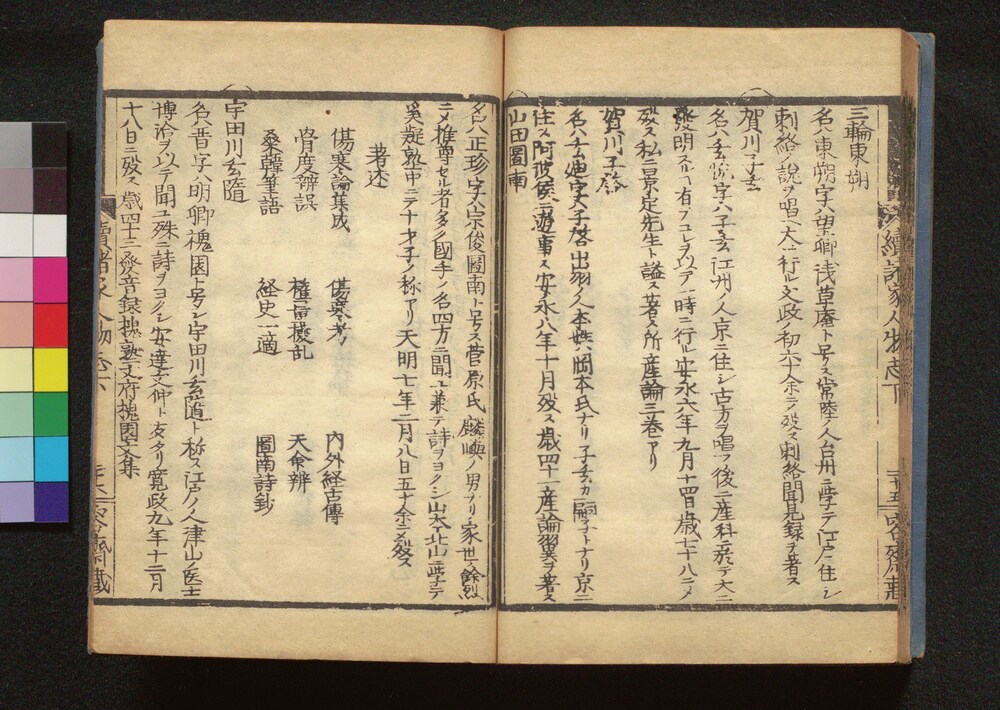 三輪東朔
名ハ東朔字ハ望卿浅草庵ト号ス常陸ノ人台州ニ学テ江戸ニ住シ
刺絡ノ説ヲ唱ヘ大ニ行ル文政ノ初六十余ニテ歿ス刺絡聞見録ヲ著ス
賀川子玄
名ハ玄悦字ハ子玄江州ノ人京ニ住シ古方ヲ唱フ後ニ産科ニ於テ大ニ
發明スルヿ有テコレヲ以テ一時ニ行ル安永六年九月十四日歳七十八ニメ
歿ス私ニ景定先生ト謚ス著ス所産論三巻アリ
賀川子啓
名ハ玄迪字ハ子啓出羽ノ人本姓ハ岡本氏ナリ子玄カ嗣子トナリ京ニ
住ス阿波侯ニ遊事ス安永八年十月歿ス歳四十一産論翼ヲ著ス
山田圖南
續諸家人物志下
三十五
名ハ正珍字ハ宗俊圖南ト号ス菅原氏麟嶼ノ男ナリ家世ノ餘烈
ニメ推尊セル者多ク國手ノ名四方ニ聞ユ兼テ詩ヲヨクシ山本北山ニ学テ
奚疑塾中ニテ十才子ノ称アリ天明七年二月八日五十余ニメ歿ス
著述
傷寒論集成　傷寒考　内外経古傳
骨度辨誤　權量撥乱　天命辨
桑韓筆語　経史一適　圖南詩鈔
宇田川玄隨
名ハ晋字ハ明卿槐園ト号シ宇田川玄隨ト称ス江戸ノ人津山ノ医士
博洽ヲ以テ聞ユ殊ニ詩ヲヨクシ安達文仲ト友タリ寛政九年十二月
十八日ニ歿ス歳四十三發音録槐塾文府槐園文集
續諸家人物志下